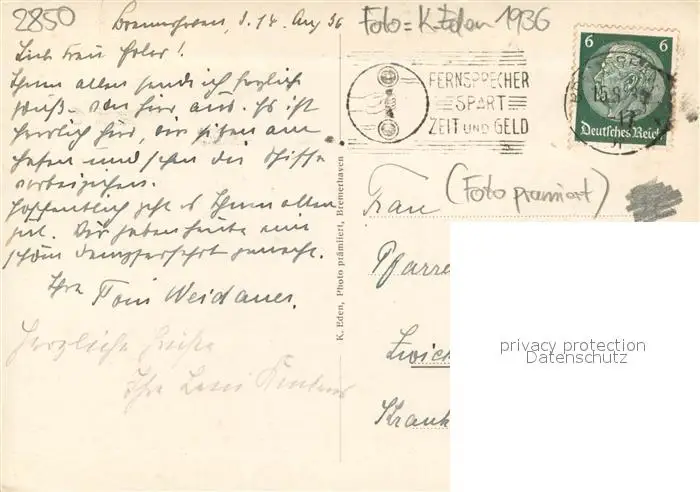 2850
Foto = K. Eden 1936
Bremerhaven, d. 14. Aug 36
Liebe Frau
Ihnen allen sende ich herzlich
von hier aus. Es ist
herrlich hier, wir sitzen am
Hafen und sehen die Schiffe
vorbeiziehen.
Hoffentlich geht es Ihnen allen
gut. Wir haben heute eine
schöne Dampferfahrt gemacht.
Ihre Toni Weidauer.
Herzliche Grüße
Ihre
K. Eden, Photo prämiiert, Bremerhaven
FERNSPRECHER
SPART
ZEIT UND GELD
6 6
Deutsches Reich
(Foto prämiiert)
Frau
Pfarre
Zwick
Krank
privacy protection
Datenschutz